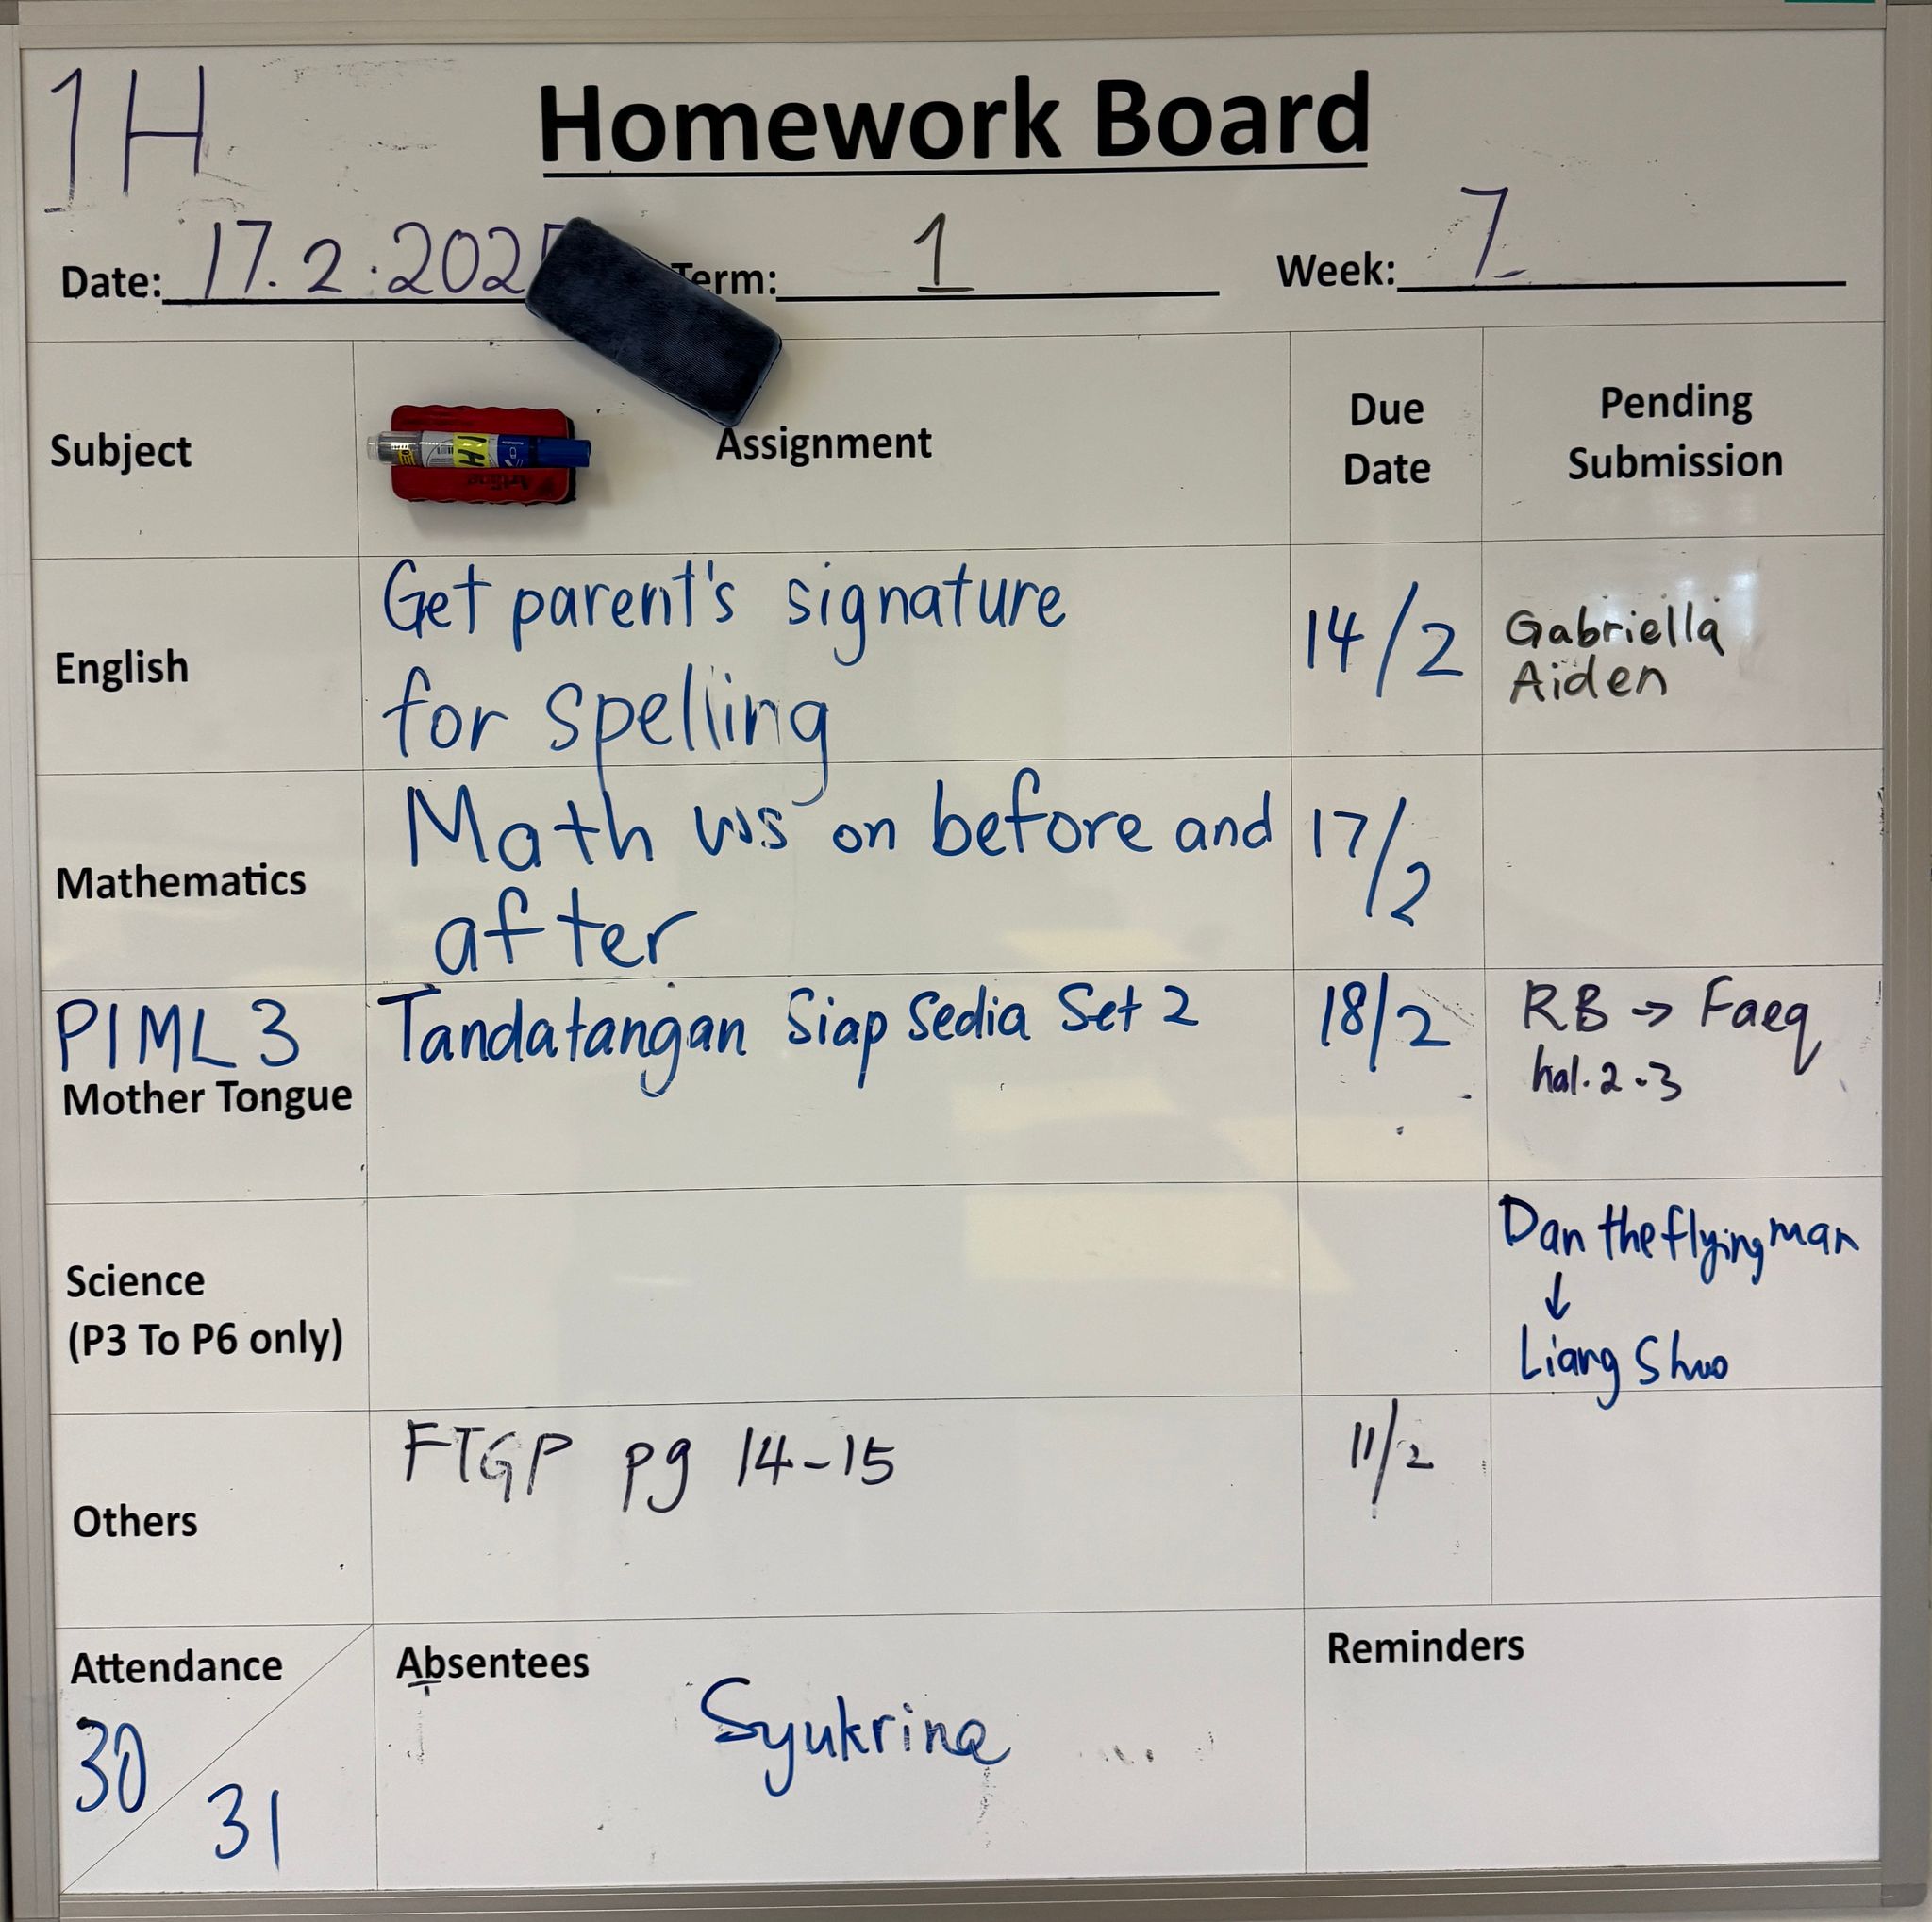 1H
Homework Board
Date: 17.2.2025
Term: 1
Week: 7
Subject
Assignment
Due
Date
Pending
Submission
English
Get parent's signature
for spelling
14/2
Gabriella
Aiden
Mathematics
Math ws on before and
after
17/2
PIML 3
Mother Tongue
Tandatangan Siap Sedia Set 2
18/2
RB → Faeq
hal. 2-3
Science
(P3 To P6 only)
Dan the flying man
↓
Liang Shuo
Others
FTGP pg 14-15
11/2
Attendance
30
31
Absentees
Syukrina
Reminders
1H